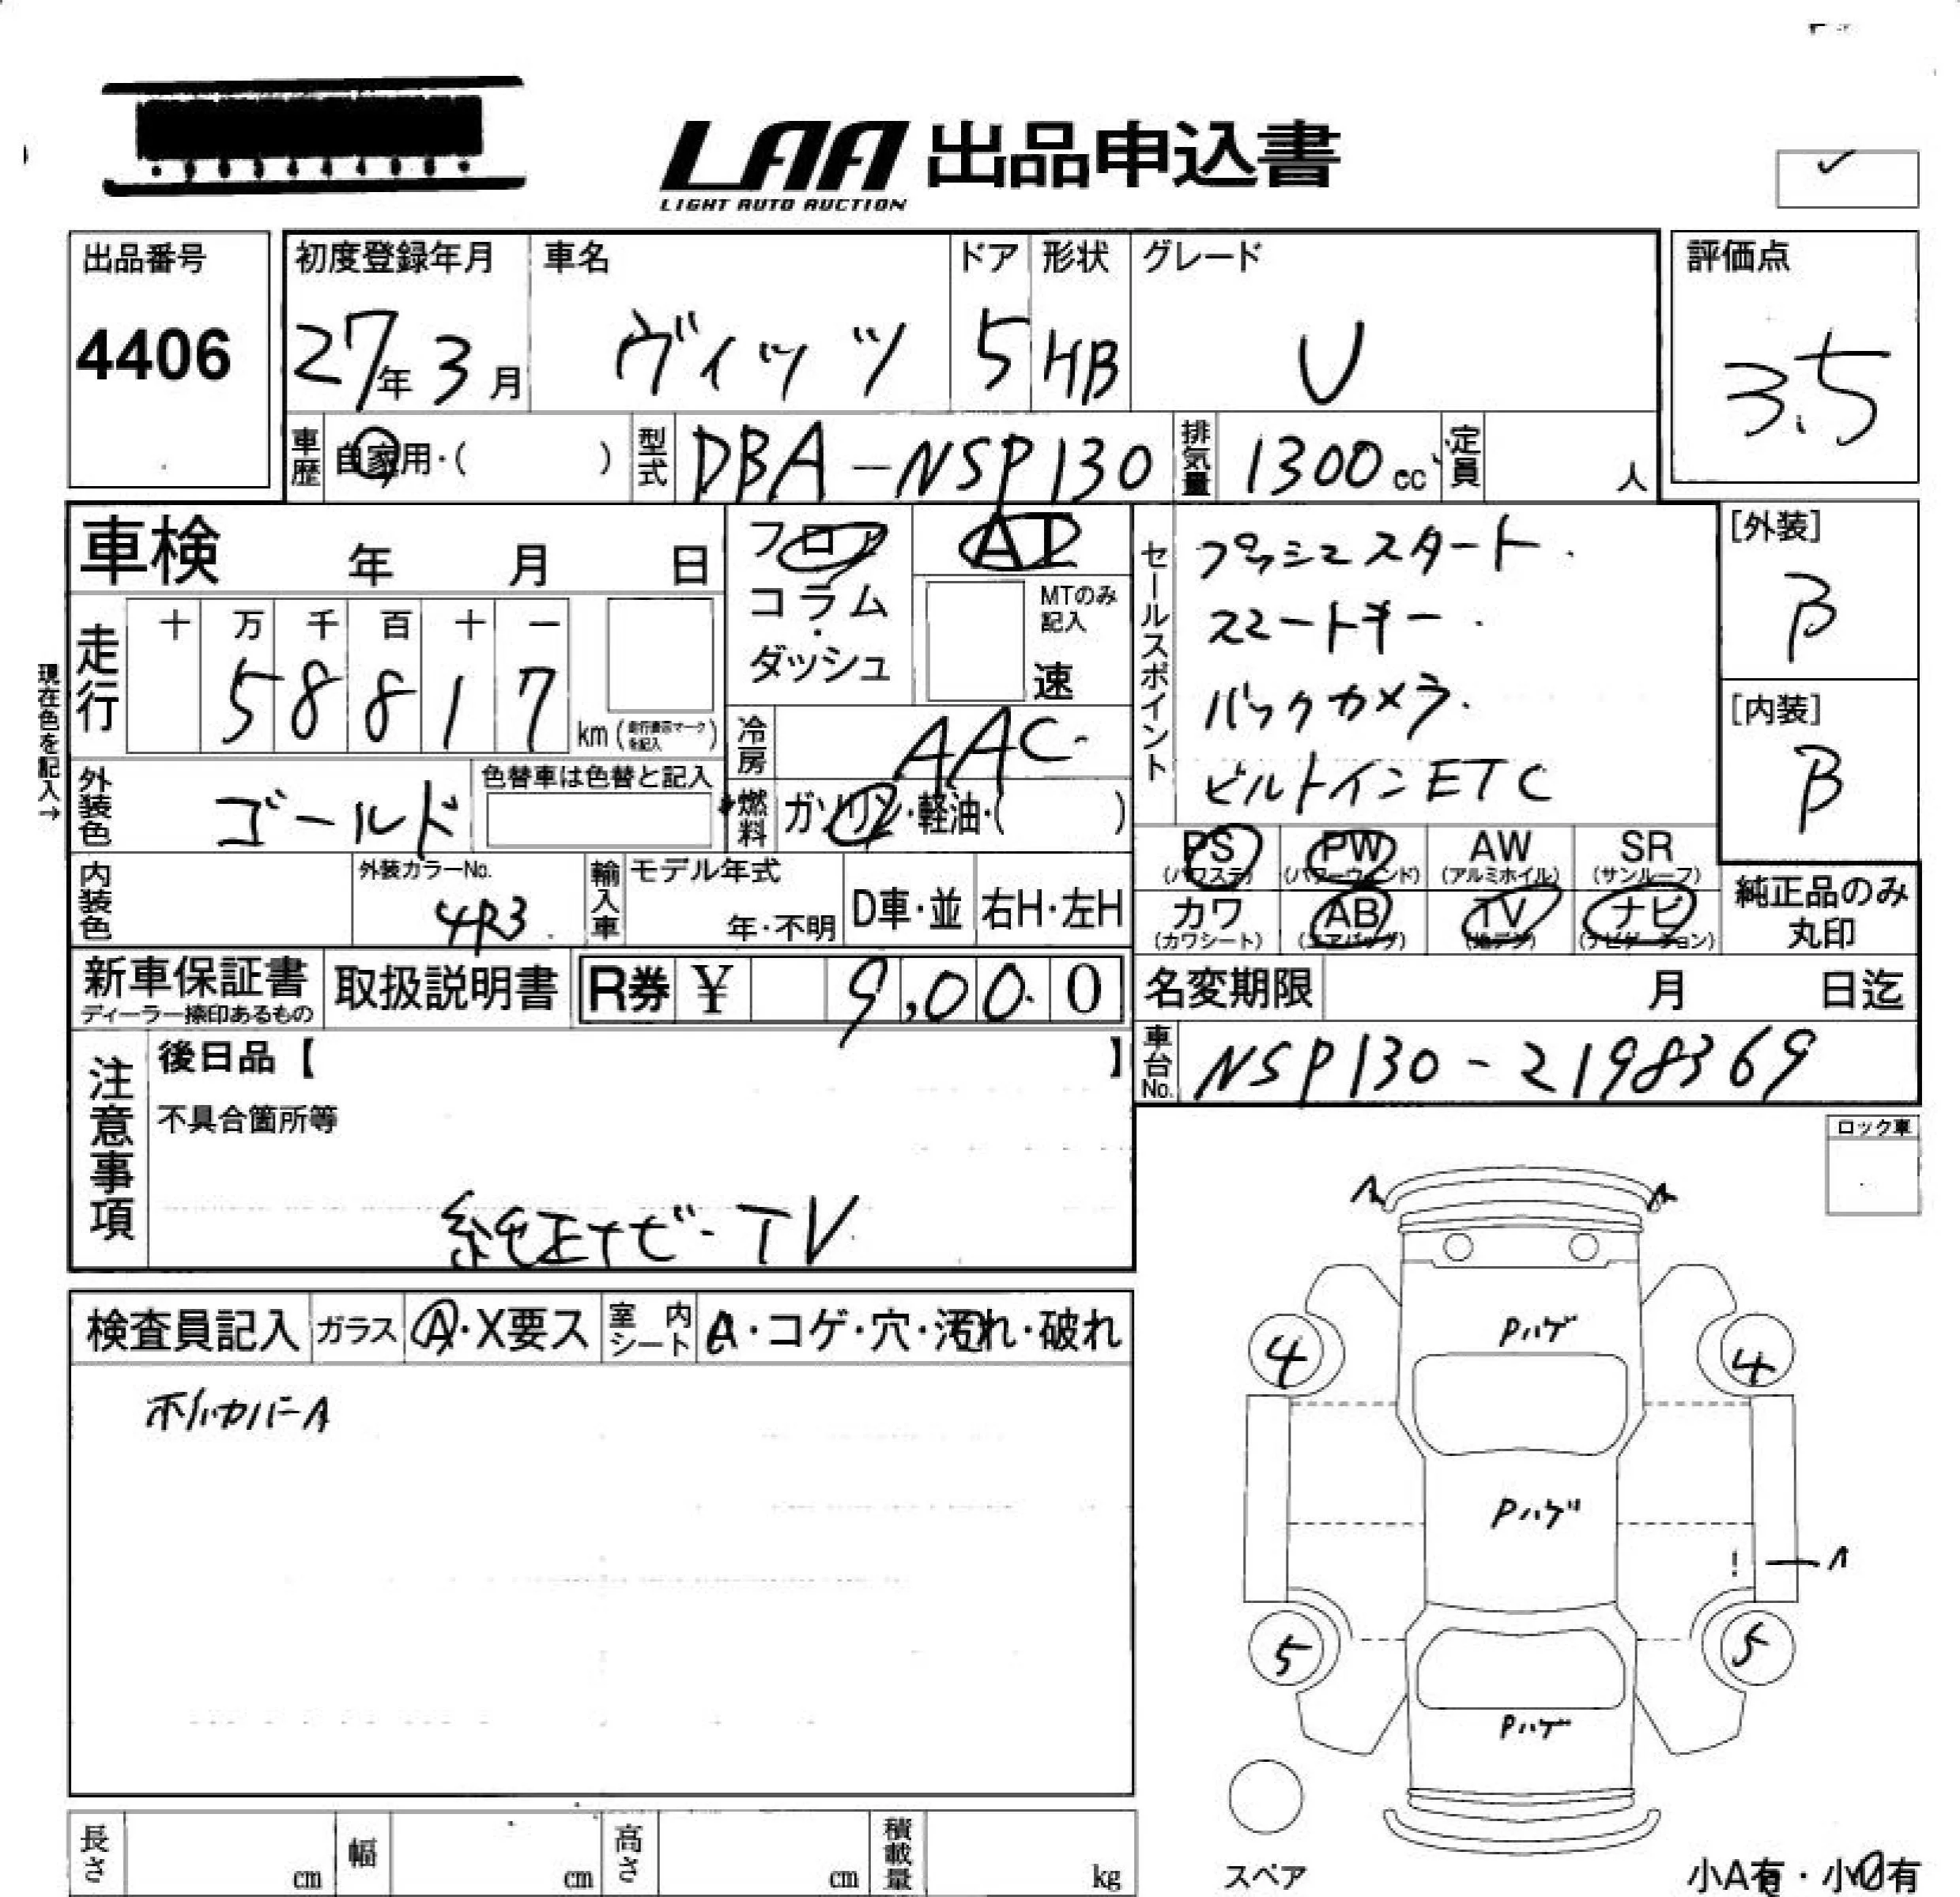 LAA 出品申込書
LIGHT AUTO AUCTION
出品番号
4406
初度登録年月
27年 3月
車名
ヴィッツ
ドア
5
形状
HB
グレード
U
評価点
3.5
車歴
自家用・( )
型式
DBA-NSP130
排気量
1300 cc
定員
人
車検 年 月 日
フロア
コラム
・
ダッシュ
AT
MTのみ
記入
速
セールスポイント
プッシュスタート.
スマートキー.
バックカメラ.
ビルトインETC
[外装]
B
[内装]
B
現在色を記入→
走行
十 万 千 百 十 一
5 8 8 1 7
km (走行表示マークを記入)
冷房
AAC
外装色
ゴールド
色替車は色替と記入
燃料
ガソリン・軽油・( )
内装色
外装カラーNo.
4R3
輸入車
モデル年式
年・不明
D車・並
右H・左H
PS
(パワステ)
PW
(パワーウィンド)
AW
(アルミホイル)
SR
(サンルーフ)
カワ
(カワシート)
AB
(エアバッグ)
TV
(地デジ)
ナビ
(ナビゲーション)
純正品のみ
丸印
新車保証書
ディーラー捺印あるもの
取扱説明書
R券 ¥ 9,000
名変期限 月 日迄
車台No.
NSP130-2198369
注意事項
後日品【 】
不具合箇所等
純正ナビ・TV
ロック車
検査員記入
ガラス
A・X要ス
室内シート
A・コゲ・穴・汚れ・破れ
Pハゲ
4
4
Pハゲ
A
5
5
Pハゲ
スペア
小A有・小U有
長さ
cm
幅
cm
高さ
cm
積載量
kg